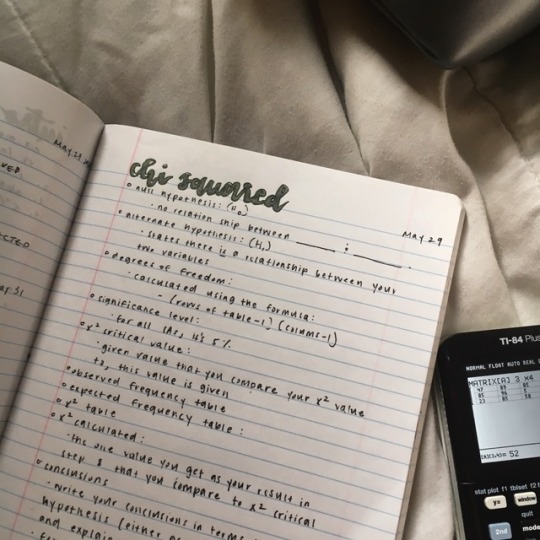 May 29
chi squared
null hypothesis: (H₀)
· no relationship between ______ & ______.
alternate hypothesis: (H₁)
· states there is a relationship between your
two variables
degrees of freedom:
· calculated using the formula:
- (rows of table-1)(colums-1)
significance level:
· for all IAs, it's 5%
x² critical value:
· given value that you compare your x² value
to, this value is given
observed frequency table
expected frequency table:
x² table
x² calculated:
· the one value you get as your result in
step 8 that you compare to x² critical
conclusions
· write your conclusions in terms
hypothesis (either
and explain
TI-84 Plus
NORMAL FLOAT AUTO REAL
MATRIX[A] 3 ×4
= 52
stat plot f1 tblset f2
y=
window
quit
2nd
mode